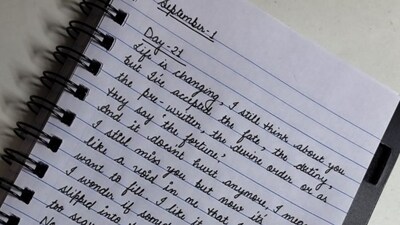 September-1
Day-21
Life is changing, I still think about you
but I've accepted the fate, the destiny,
the pre-written, the devine order or as
they say 'the fortune,'
And it doesnt hurt anymore, I mean
I still miss you but now it's
like a void in me that
want to fill. I like it
I wonder if
slipped into
too